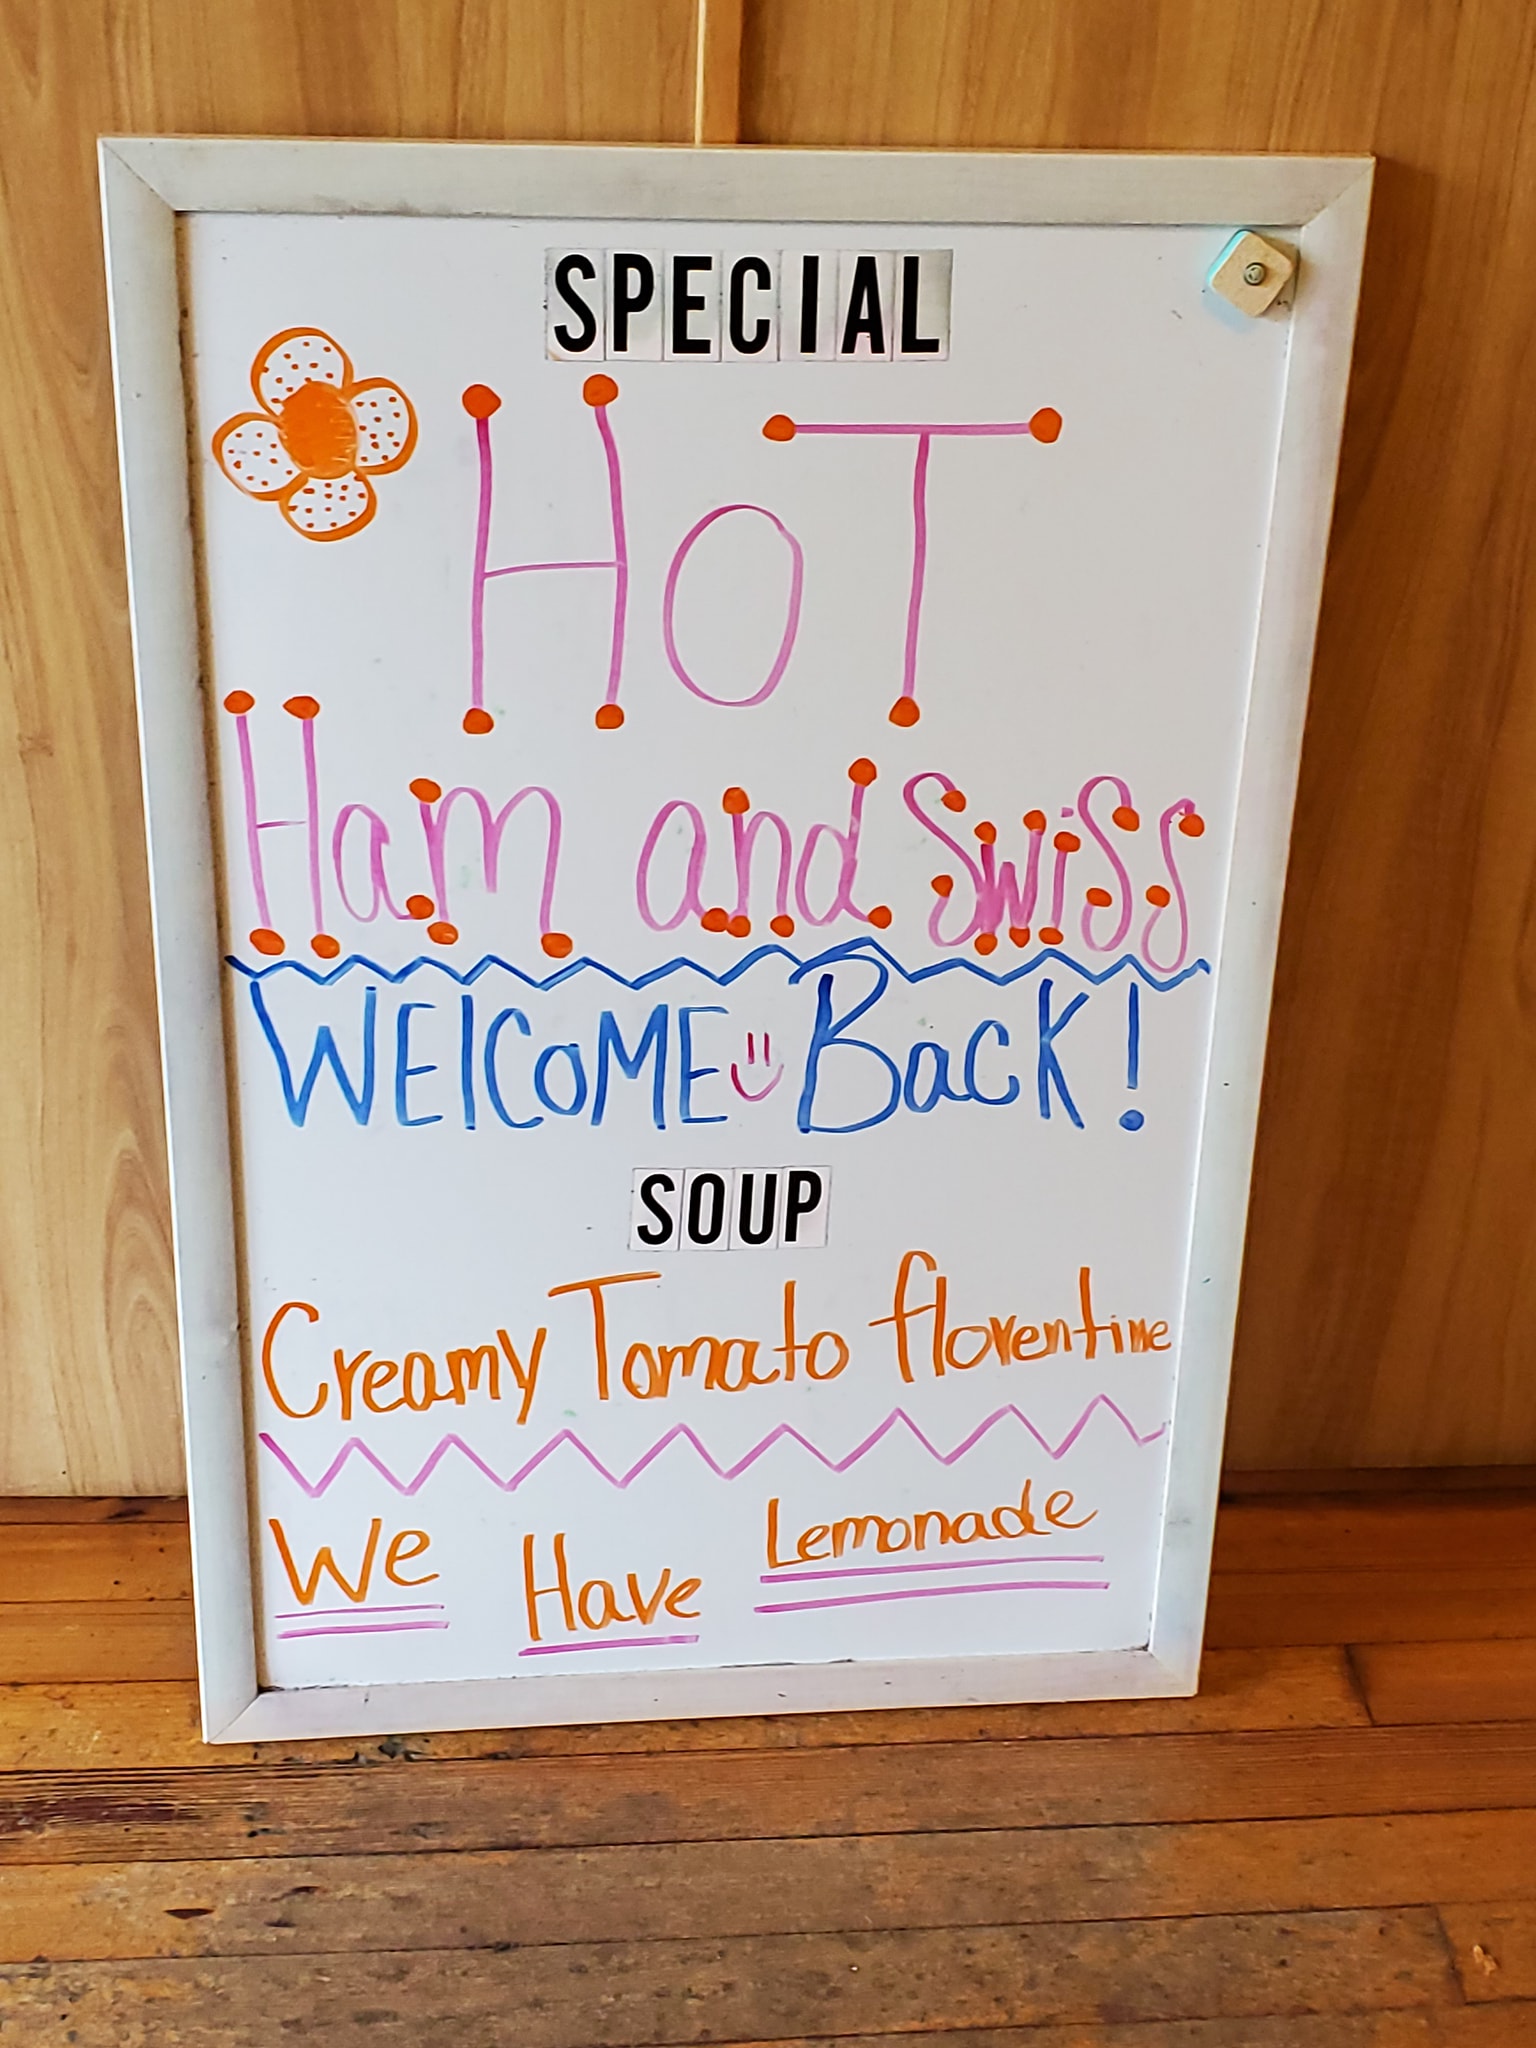 SPECIAL
HoT
Ham and Swiss
WElCoME Back!
SOUP
Creamy Tomato florentine
We Have Lemonade